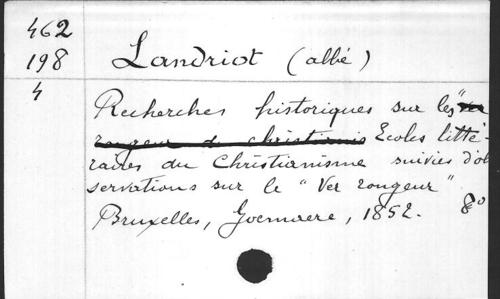 462
198 Landriot (abbé)
4
Recherches historiques sur les "ver
rongeur du christianis Ecoles litté-
raires du Christianisme suivies d'ob
servations sur le "Ver rongeur"
Bruxelles, Goemaere, 1852. 8º